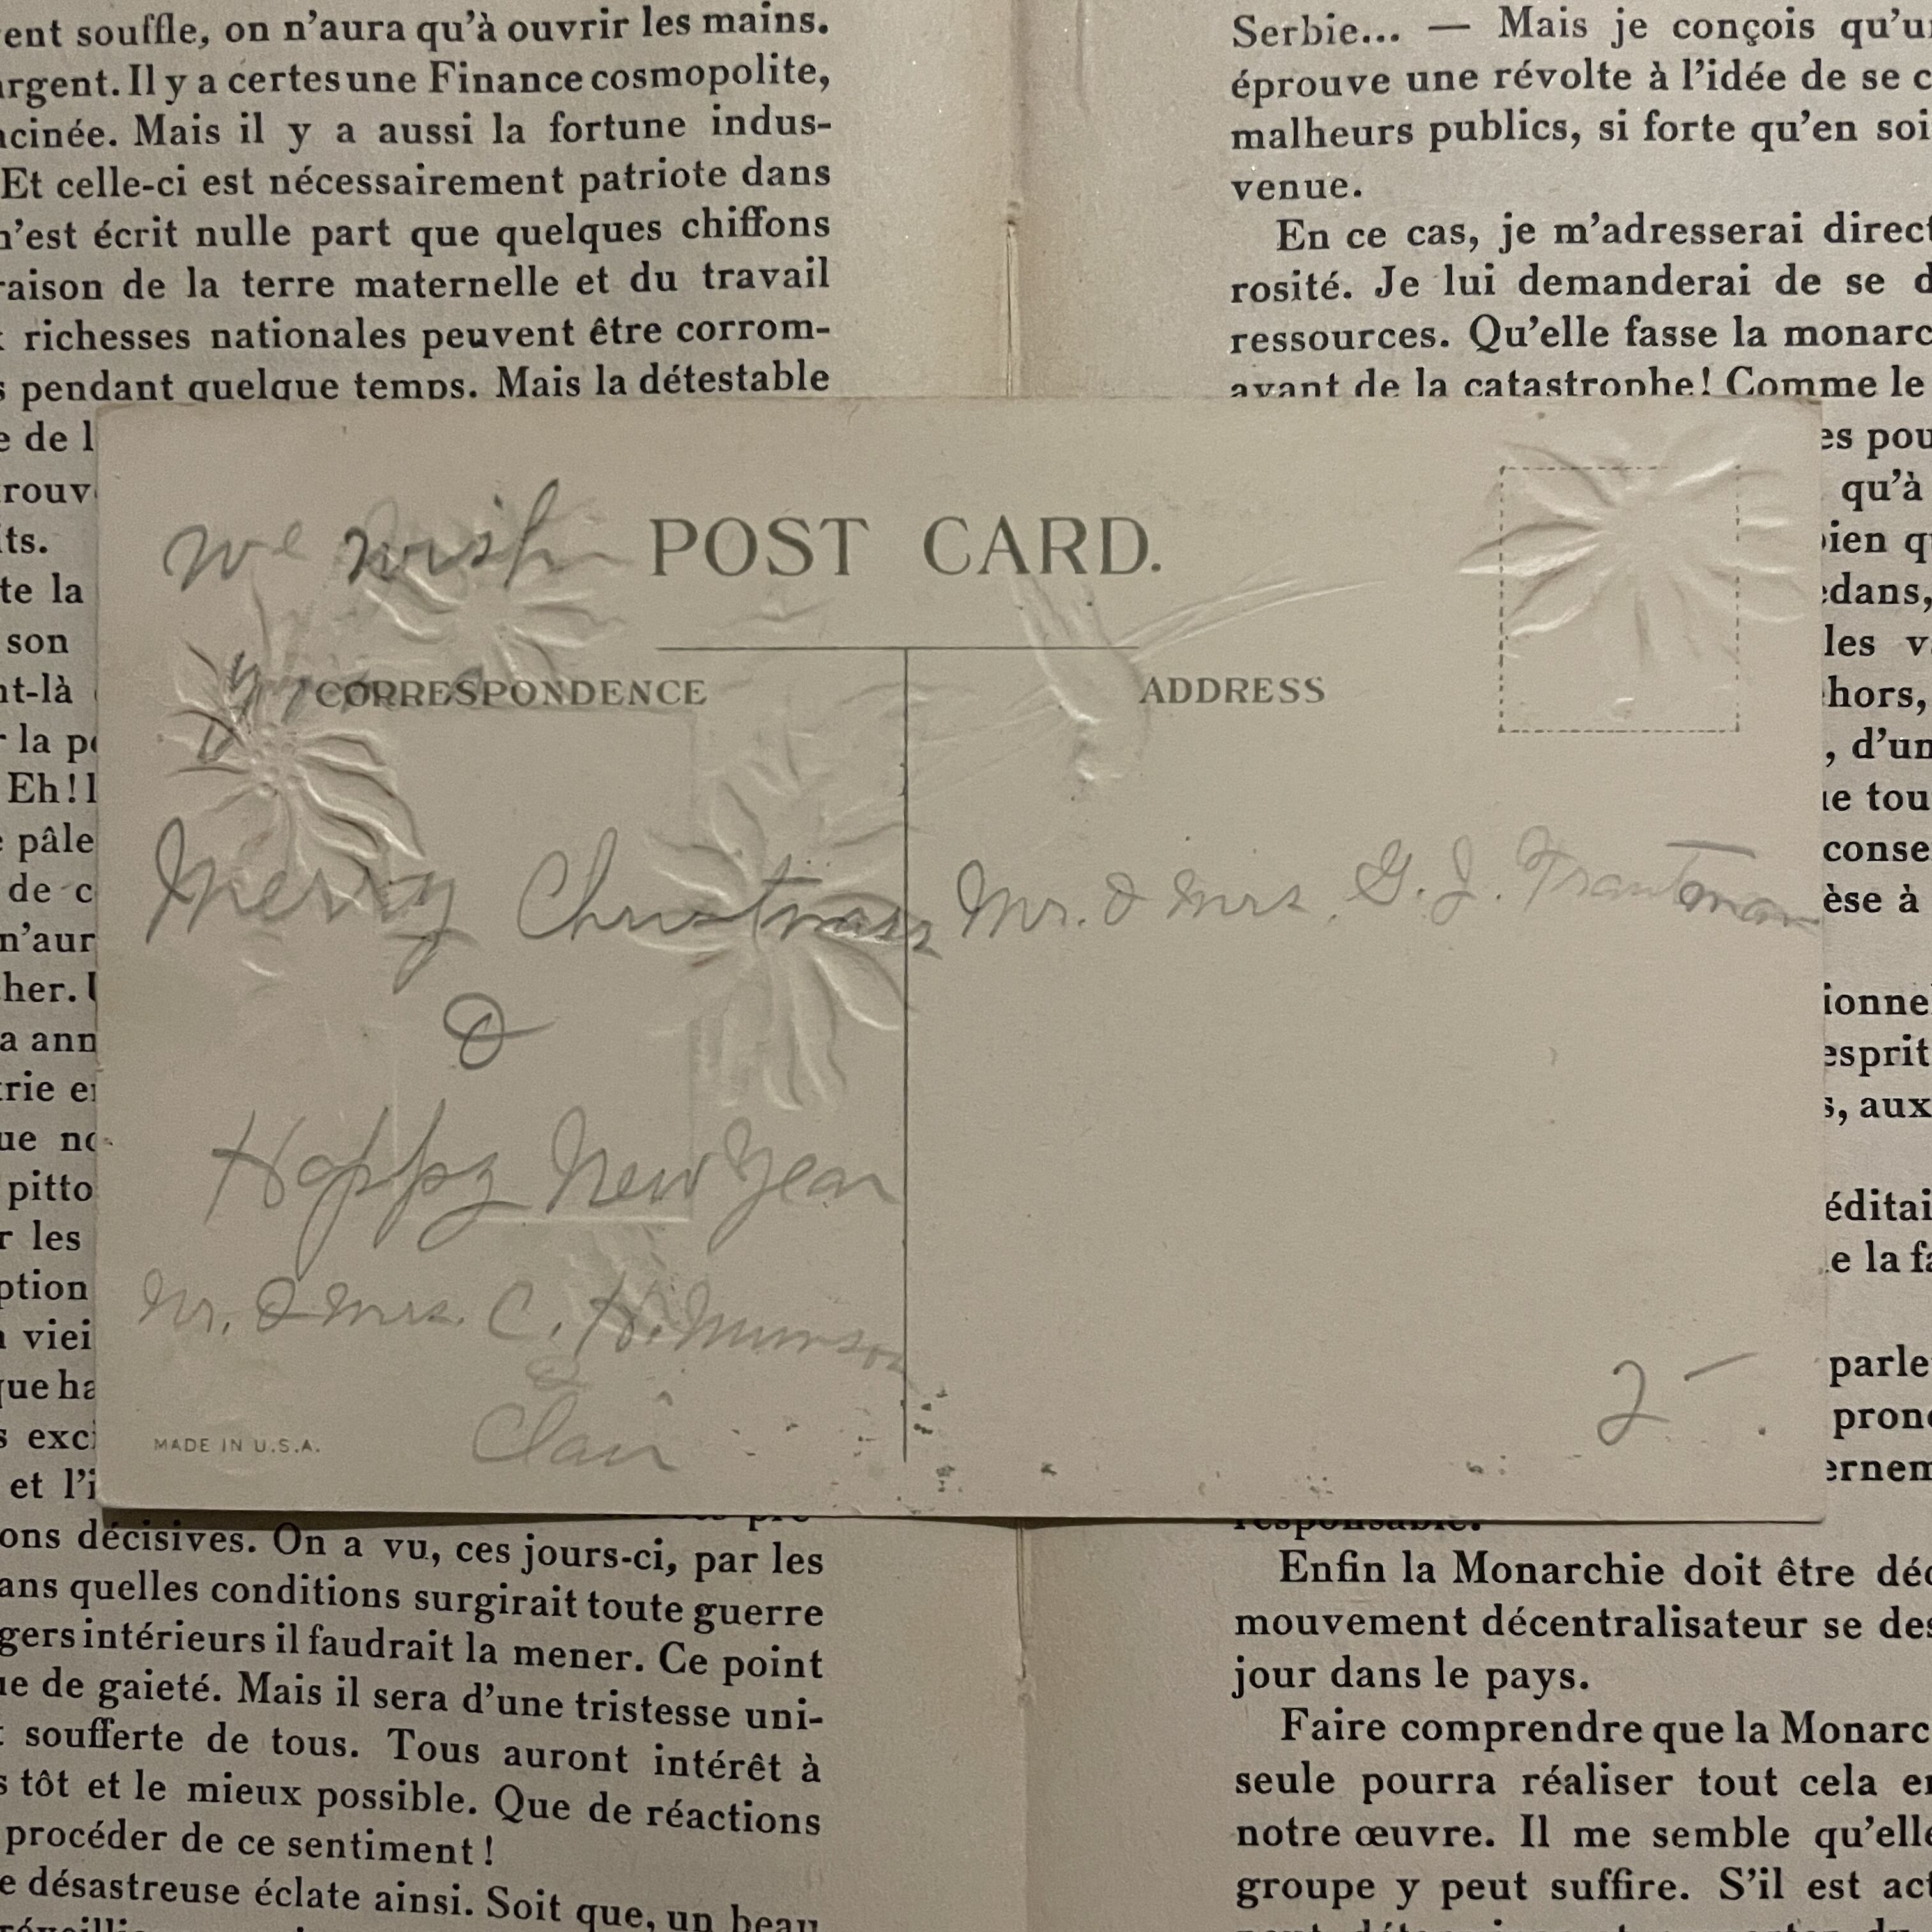 souffle, on n'aura qu'à ouvrir les mains.
Il y a certes une Finance cosmopolite,
Mais il y a aussi la fortune indus-
Et celle-ci est nécessairement patriote dans
n'est écrit nulle part que quelques chiffons
de la terre maternelle et du travail
richesses nationales peuvent être corrom-
pendant quelque temps. Mais la détestable
de l
ts.
te la
son
nt-là
la
Eh!
pâle
de c
n'aur
her.
a ann
pitto
les
ption
viei
exc
et l'i
ons décisives. On a vu, ces jours-ci, par les
ans quelles conditions surgirait toute guerre
gers intérieurs il faudrait la mener. Ce point
ue de gaieté. Mais il sera d'une tristesse uni-
soufferte de tous. Tous auront intérêt à
tôt et le mieux possible. Que de réactions
procéder de ce sentiment !
désastreuse éclate ainsi. Soit que, un beau
We wish
POST CARD.
CORRESPONDENCE
Merry Christmas
&
Happy New Year
Mr. & Mrs. C. H. Munson
&
Clair
MADE IN U.S.A.
ADDRESS
Mr. & Mrs. G. J. Trautman
2 -
Serbie... — Mais je conçois qu'u
éprouve une révolte à l'idée de se c
malheurs publics, si forte qu'en soi
venue.
En ce cas, je m'adresserai direct
rosité. Je lui demanderai de se d
ressources. Qu'elle fasse la monarc
avant de la catastrophe! Comme le
es pou
qu'à
bien q
edans,
les v
hors,
, d'un
ue tou
conse
èse à
ionne
esprit
s, aux
éditai
e la fa
parle
pron
ernem
responsable.
Enfin la Monarchie doit être déc
mouvement décentralisateur se des
jour dans le pays.
Faire comprendre que la Monarc
seule pourra réaliser tout cela e
notre œuvre. Il me semble qu'elle
groupe y peut suffire. S'il est act